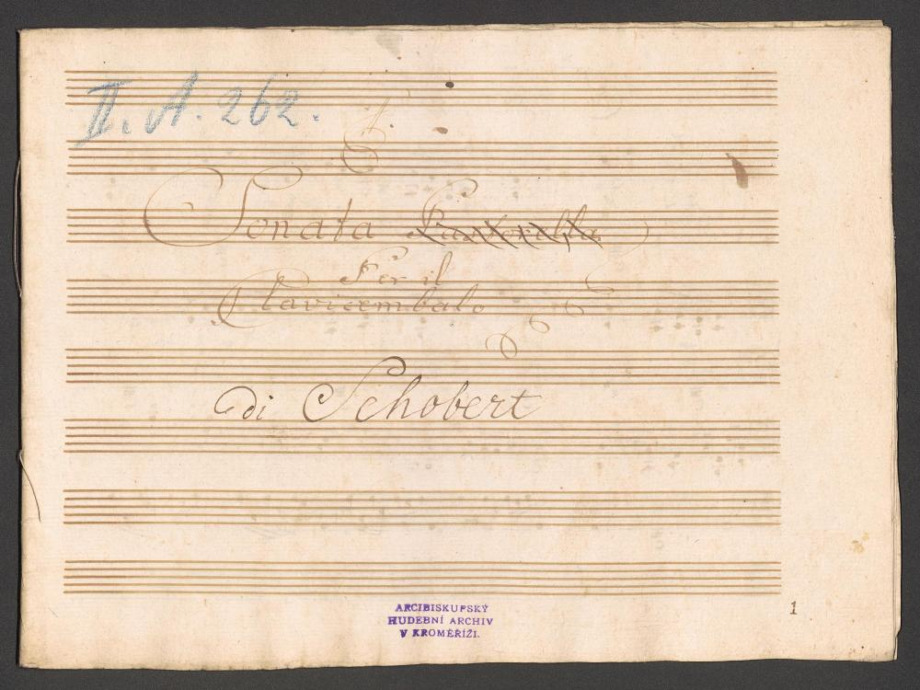 II. A. 262.
Sonata
Per il
Clavicembalo
di Schobert
ARCIBISKUPSKÝ
HUDEBNÍ ARCHIV
V KROMĚŘÍŽI.
1